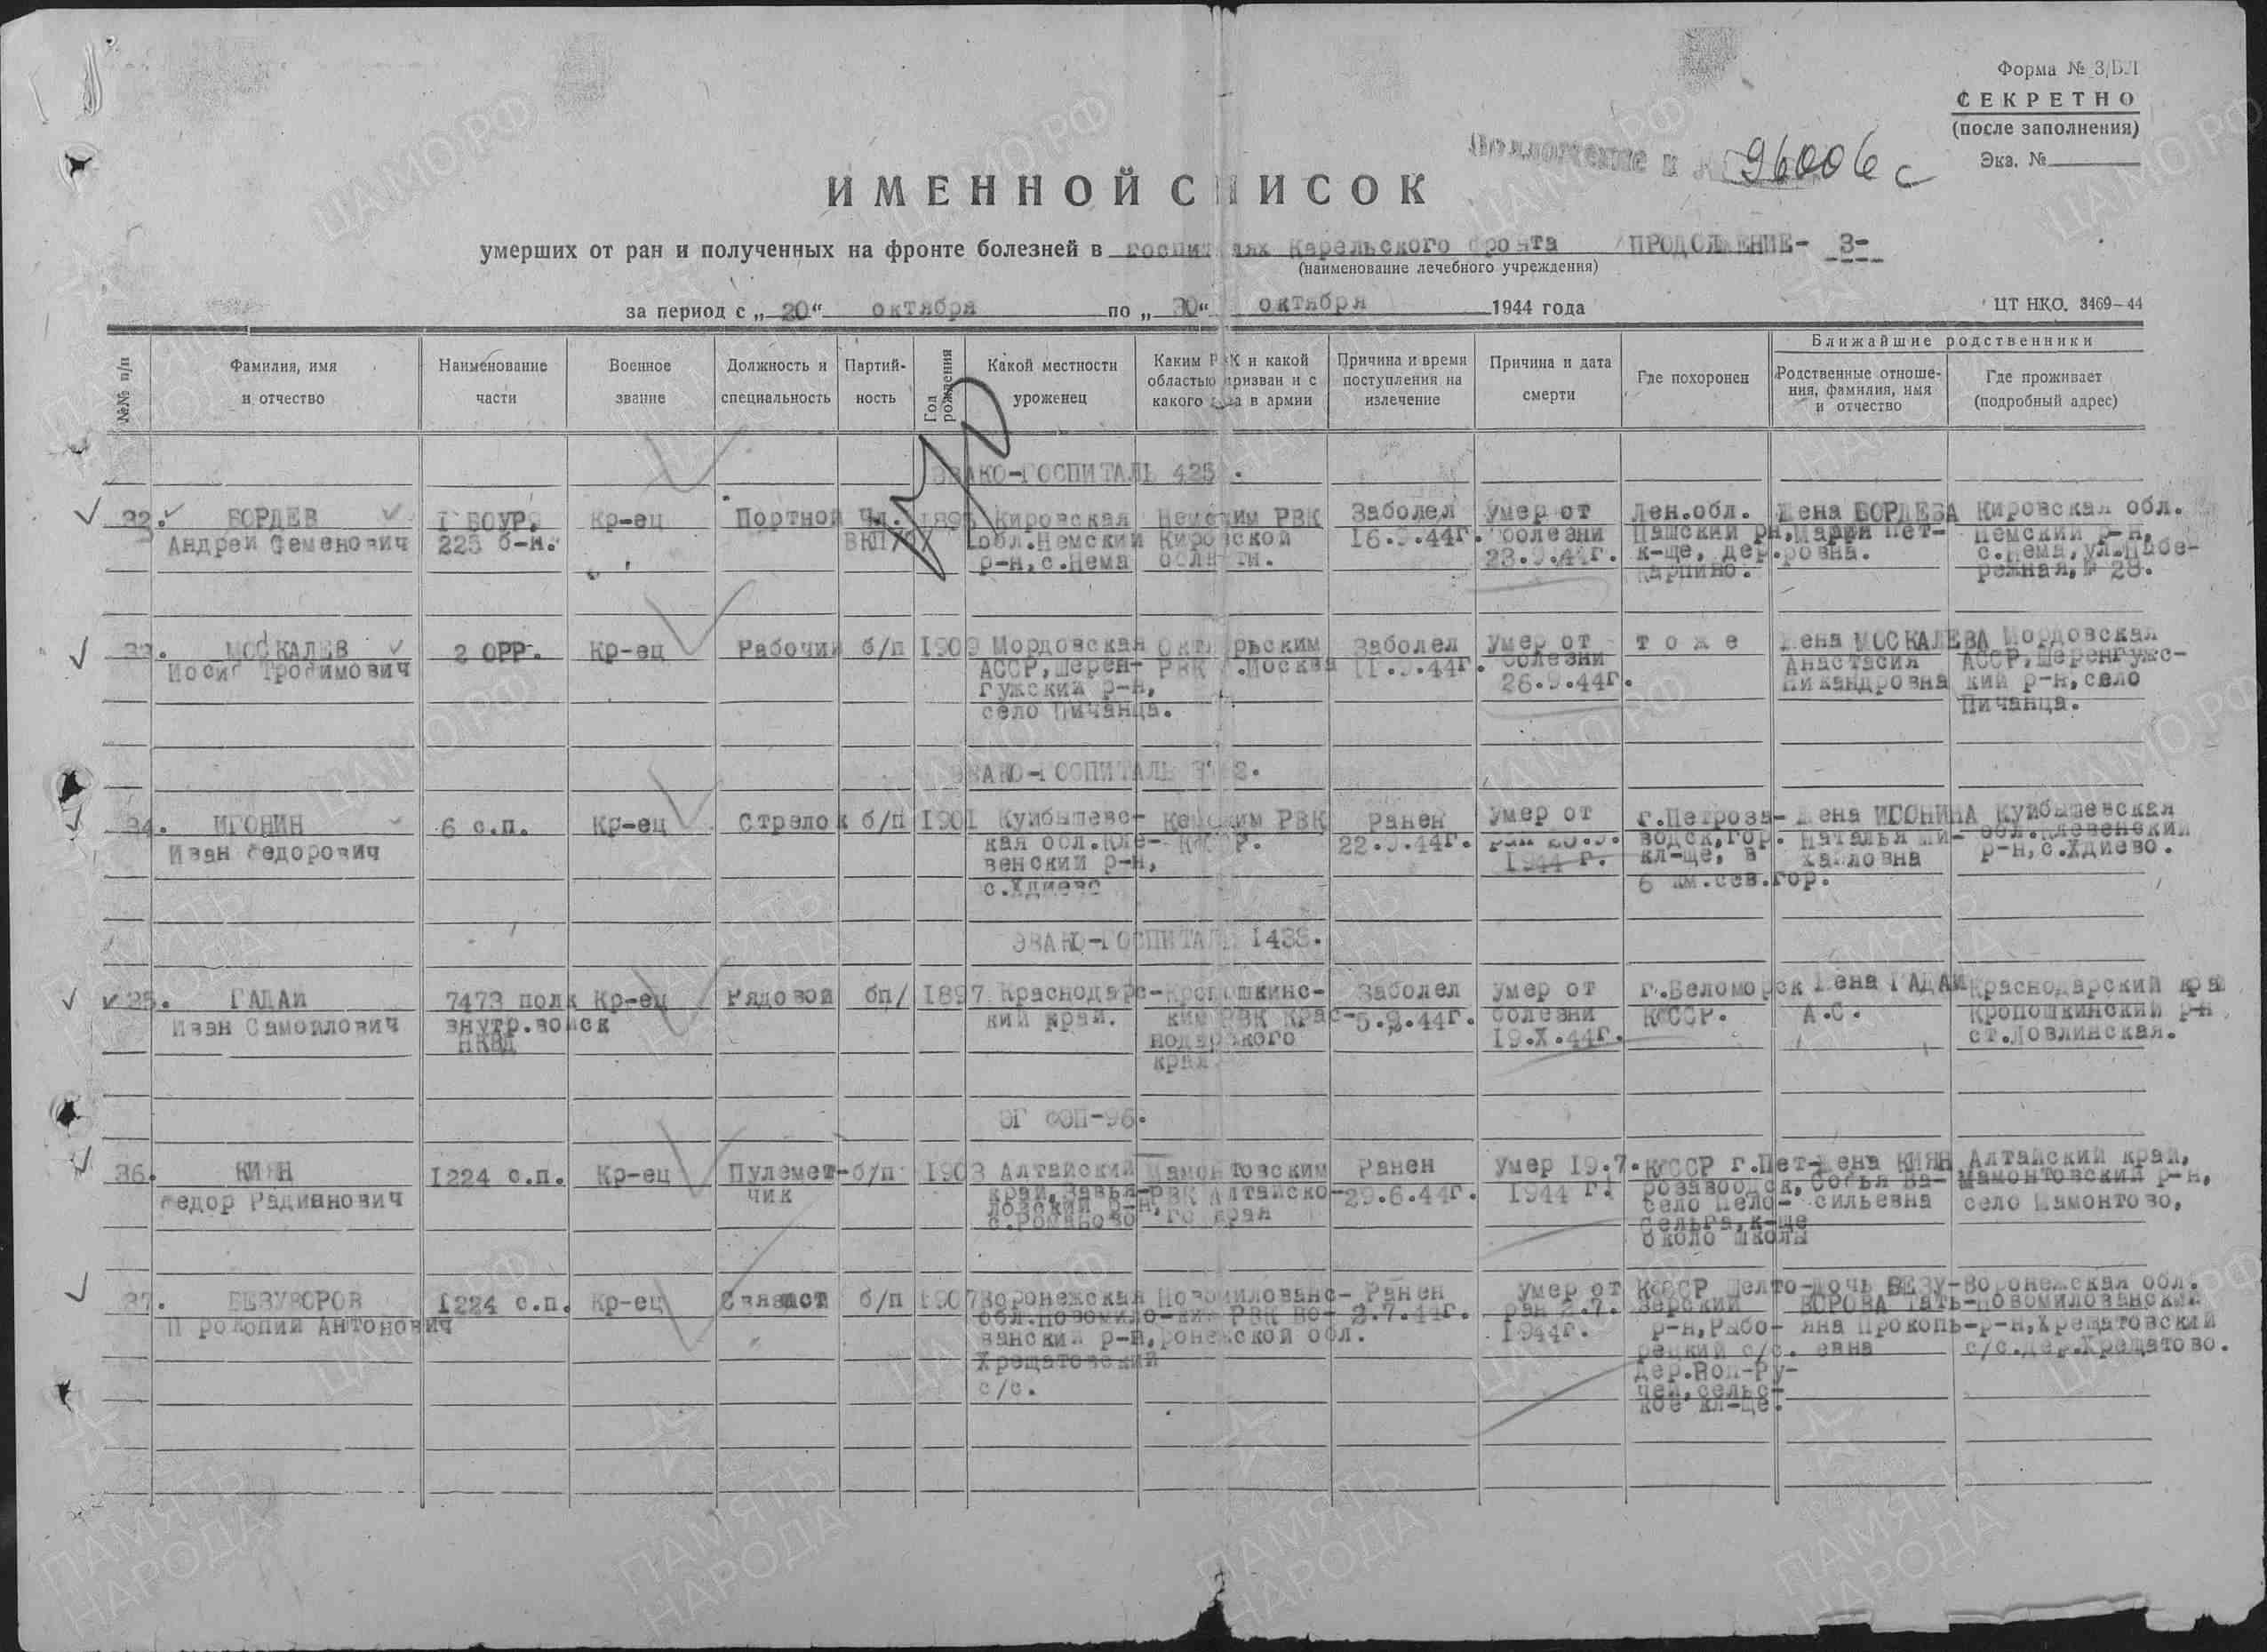 Форма № 3/БЛ
СЕКРЕТНО
(после заполнения)
Экз. №
96006 с
ИМЕННОЙ СПИСОК
умерших от ран и полученных на фронте болезней в госпиталях Карельского фронта /ПРОДОЛЖЕНИЕ- 3-
(наименование лечебного учреждения)
за период с „20“ октября по „30“ октября 1944 года
ЦТ НКО. 3469-44
№№ п/п
Фамилия, имя
и отчество
Наименование
части
Военное
звание
Должность и
специальность
Партий-
ность
Год
рождения
Какой местности
уроженец
Каким РВК и какой
областью призван и с
какого года в армии
Причина и время
поступления на
излечение
Причина и дата
смерти
Где похоронен
Ближайшие родственники
Родственные отноше-
ния, фамилия, имя
и отчество
Где проживает
(подробный адрес)
ЭВАКО-ГОСПИТАЛЬ
32. БОРДЕВ
Андрей Семенович
I БОУР.
223 б-н.
Кр-ец
Портной
Чл.
ВКП/б/
Кировская
обл.Немский
р-н,с.Нема
Немским РВК
Кировской
области.
Заболел
16.9.44г.
Умер от
болезни
23.9.44г.
Лен.обл.
Пашский рн,
к-ще, дер.
Карпино.
Жена БОРДЕВА
Мария Пет-
ровна.
Кировская обл.
Немский р-н,
с.Нема,ул.Набе-
режная,№ 28.
33. МОСКАЛЕВ
Иосиф Трофимович
2 ОРР.
Кр-ец
Рабочий
б/п
1909
Мордовская
АССР,Шерен-
гужский р-н,
село Пичанца.
Октябрьским
РВК г.Москва
Заболел
11.9.44г.
Умер от
болезни
26.9.44г.
т о ж е
Жена МОСКАЛЕВА
Анастасия
Никандровна
Мордовская
АССР,Шеренгужс-
кий р-н,село
Пичанца.
ЭВАКО-ГОСПИТАЛЬ
34. ИГОНИН
Иван Федорович
6 с.п.
Кр-ец
Стрелок
б/п
1901
Куйбышевс-
кая обл.Кле-
венский р-н,
с.Хдиево
Кемским РВК
КФССР.
Ранен
22.9.44г.
Умер от
ран
1944 г.
г.Петроза-
водск,гор.
кл-ще, в
6 км.сев.гор.
Жена ИГОНИНА
Наталья Ми-
хайловна
Куйбышевская
обл.Клевенский
р-н,с.Хдиево.
ЭВАКО-ГОСПИТАЛЬ 1438.
ГАДАЙ
Иван Самойлович
7473 полк
внутр.войск
НКВД
Кр-ец
Рядовой
бп/
1897
Краснодарс-
кий край.
Кропошкинс-
ким РВК Крас-
нодарского
края
Заболел
5.9.44г.
Умер от
болезни
19.X.44г.
г.Беломорск
КФССР.
Жена ГАДАЙ
А.С.
Краснодарский край
Кропошкинский р-н
ст.Ловлинская.
ЭГ ФЭП-96.
36. КИЯН
Федор Радианович
1224 с.п.
Кр-ец
Пулемет-
чик
б/п
1903
Алтайский
край,Завья-
ловский р-н,
с.Романово
Мамонтовским
РВК Алтайско-
го края
Ранен
29.6.44г.
Умер 19.7.
1944 г.
КФССР г.Пет-
розаводск,
село Пело-
сельга,к-ще
около школы
Жена КИЯН
Софья Ва-
сильевна
Алтайский край,
Мамонтовский р-н,
село Мамонтово,
37. БЕЗУВОРОВ
Прокопий Антонович
1224 с.п.
Кр-ец
Связист
б/п
1907
Воронежская
обл.Новомило-
ванский р-н,
Хрещатовский
с/с.
Новомилованс-
ким РВК Во-
ронежской обл.
Ранен
2.7.44г.
Умер от
ран 2.7.
1944г.
КФССР Шелто-
зерский
р-н,Рыбо-
рецкий с/с.
дер.Вол-Ру-
чей,сельс-
кое кл-ще.
дочь БЕЗУ-
ВОРОВА Тать-
яна Прокопь-
евна
Воронежская обл.
Новомилованский
р-н,Хрещатовский
с/с.дер.Хрещатово.